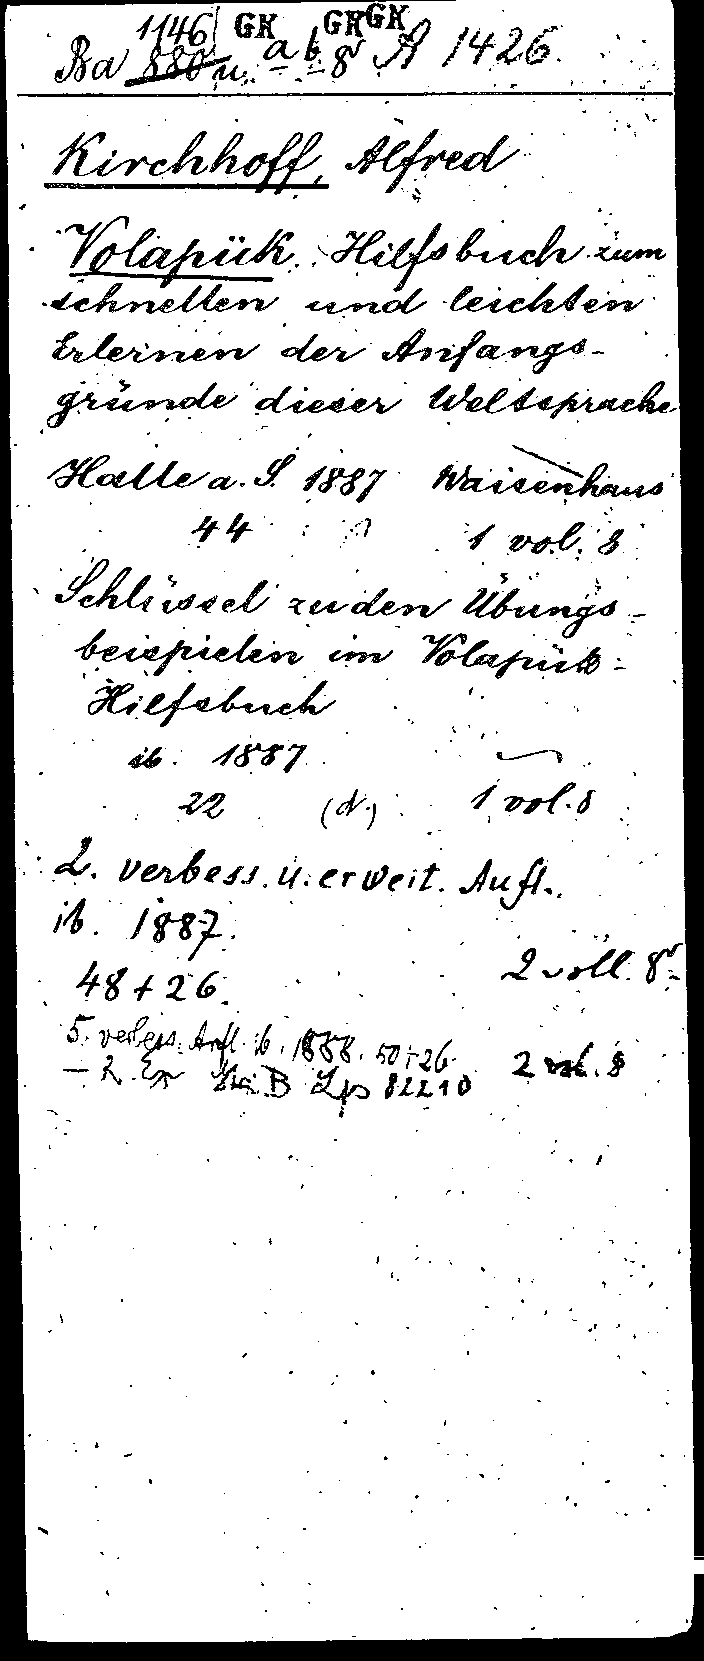 1146 GK GK GK
Ba 880 u. a b 8° A 1426.
Kirchhoff, Alfred
Volapük. Hilfsbuch zum
schnellen und leichten
Erlernen der Anfangs-
gründe dieser Weltsprache
Halle a. S. 1887 Waisenhaus
44 1 vol. 8
Schlüssel zu den Übungs-
beispielen im Volapük-
Hilfsbuch
ib. 1887
22 (d.) 1 vol. 8
2. verbess. u. erweit. Aufl.
ib. 1887.
48 + 26. 2 voll. 8°
5. verbess. Aufl. ib. 1888. 50+26. 2 vol. 8
— 2. Ex B 82210